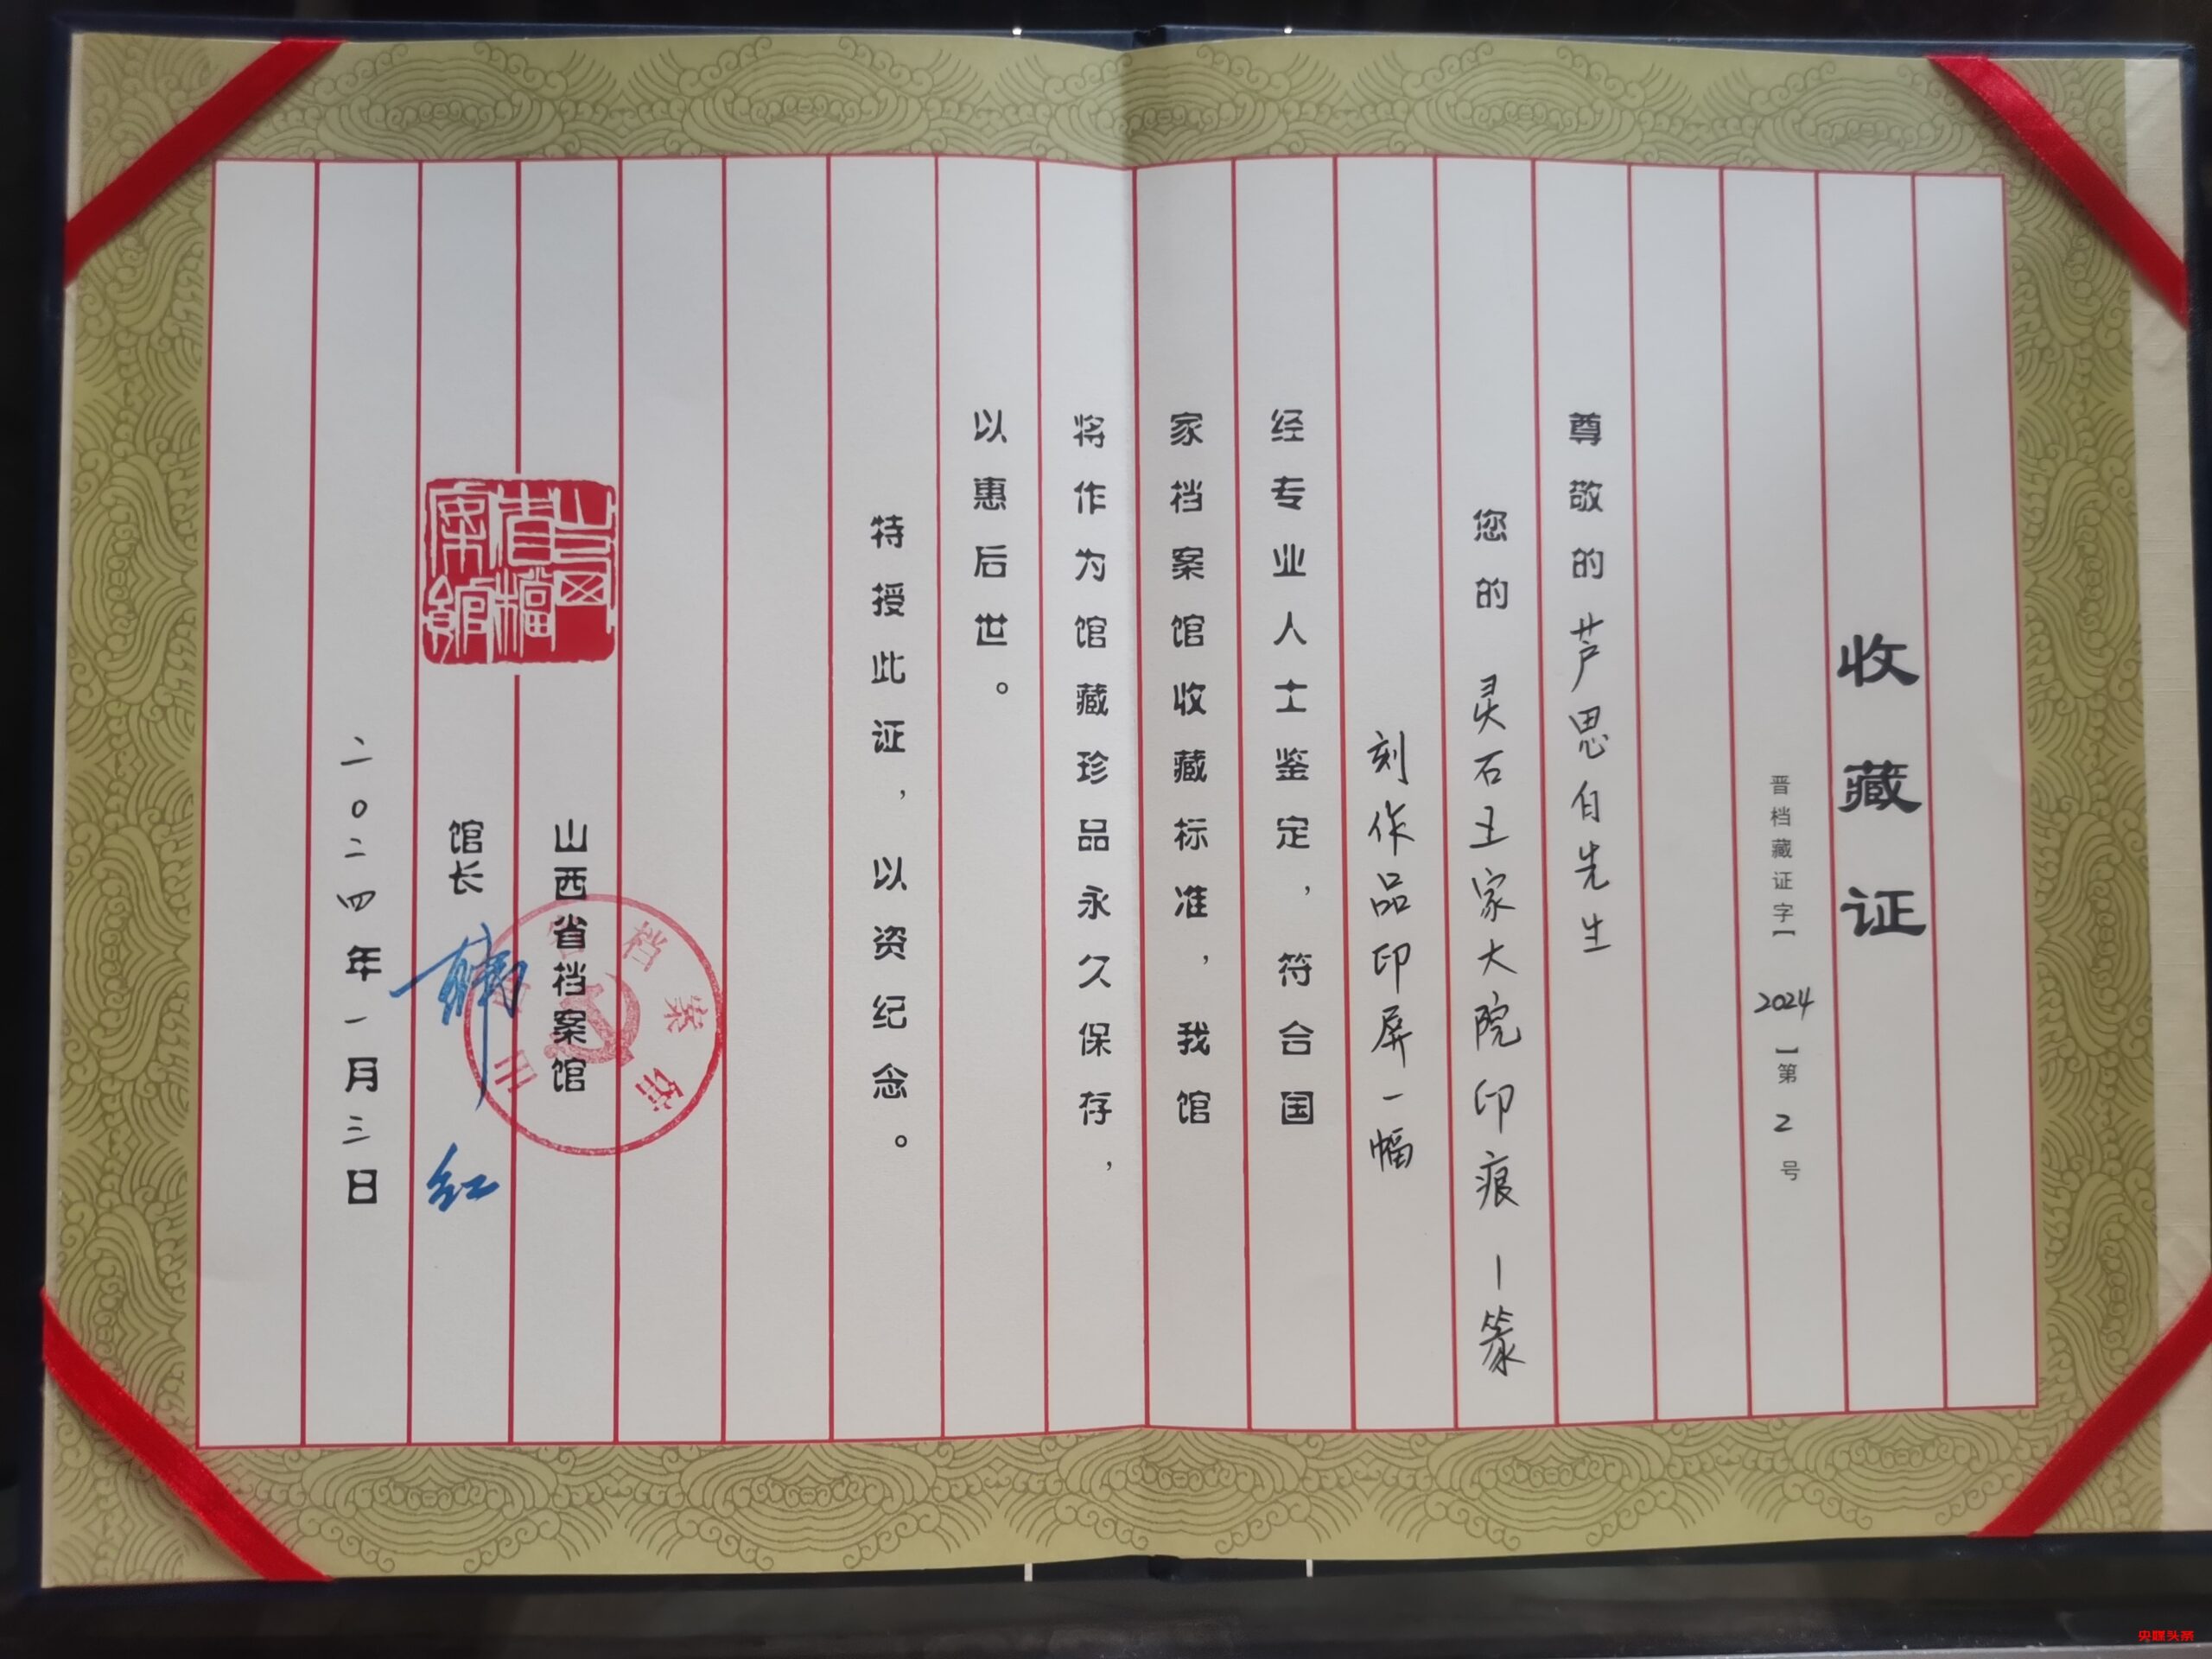 收藏证
晋档藏证字【2024】第2号
尊敬的芦思自先生
您的灵石王家大院印痕—篆
刻作品印屏一幅
经专业人士鉴定，符合国
家档案馆收藏标准，我馆
将作为馆藏珍品永久保存，
以惠后世。
特授此证，以资纪念。
山西省档案馆
馆长 韩红
二〇二四年一月三日
山西省檔案館
山西省档案馆
央媒头条